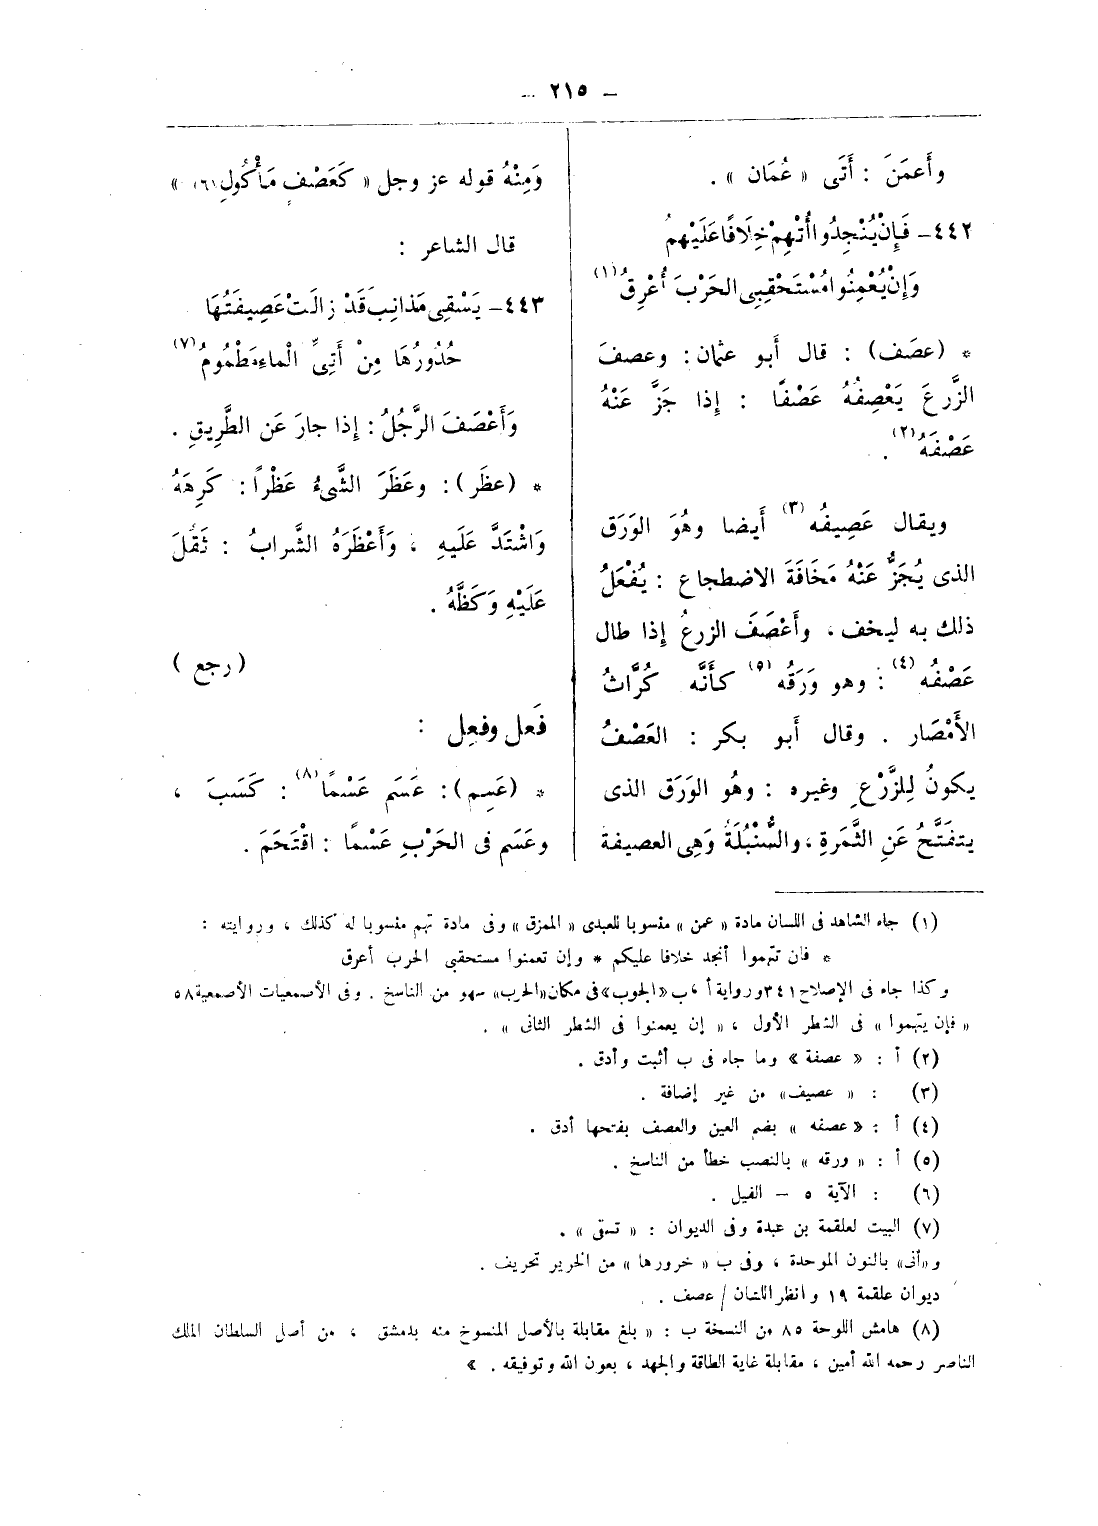 – ٢١٥ –
وأَعمَنَ : أَتَى « عُمَان » .
٤٤٢– فَإِنْ يُنْجِدُوا أُتْهِمْ خِلَافًا عَلَيْهِمُ
وَإِنْ يُعْمِنُوا مُسْتَحْقِبِى الحَرْبَ أُعْرِقُ (١)
* (عصَف) : قال أبو عثمان : وعصفَ
الزَّرعَ يَعْصِفُهُ عَصْفًا : إذا جَزَّ عَنْهُ
عَصْفَهُ (٢) .
ويقال عَصِيفُه (٣) أَيضا وهُوَ الوَرَق
الذى يُجَزُّ عَنْهُ مَخَافَةَ الاضطجاع : يُفْعَلُ
ذلك به ليخف ، وأَعْصَفَ الزرعُ إذا طال
عَصْفُه (٤) : وهو وَرَقُه (٥) كأَنَّه كُرَّاثُ
الأَمْصَار . وقال أَبو بكر : العَصْفُ
يكونُ لِلزَّرْعِ وغيره : وهُو الوَرَق الذى
يتفَتَّحُ عَنِ الثَّمَرةِ ، والسُّنْبُلَةُ وَهِى العصيفة
وَمِنْهُ قوله عز وجل « كَعَصْفٍ مَأْكُولٍ (٦) »
قال الشاعر :
٤٤٣– يَسْقِى مَذانِبَ قَدْ زالَتْ عَصِيفَتُهَا
حُدُورُهَا مِنْ أَتِىِّ الْماءِ مَطْمُومُ (٧)
وَأَعْصَفَ الرَّجُلُ : إذا جارَ عَن الطَّرِيقِ .
* (عظَر) : وعَظَرَ الشَّىءُ عَظْراً : كَرِهَهُ
وَاشْتَدَّ عَلَيهِ ، وَأَعْظَرَهُ الشَّرابُ : ثَقُلَ
عَلَيْهِ وَكَظَّهُ .
( رجع )
فَعَل وفعِل :
* (عَسِم) : عَسَم عَسْمًا (٨) : كَسَبَ ،
وعَسَم فى الحَرْبِ عَسْمًا : اقْتَحَمَ .
(١) جاء الشاهد فى اللسان مادة « عمن » منسوبا للعبدى « الممزق » وفى مادة تهم منسوبا له كذلك ، وروايته :
* فان تتهموا أنجد خلافا عليكم * وإن تعمنوا مستحقبى الحرب أعرق
وكذا جاء فى الإصلاح ٣٤١ ورواية أ ، ب «الجوب» فى مكان «الحرب» سهو من الناسخ . وفى الأصمعيات الأصمعية ٥٨
« فإن يتهموا » فى الشطر الأول ، « إن يعمنوا فى الشطر الثانى » .
(٢) أ : « عصفة » وما جاء فى ب أثبت وأدق .
(٣) : « عصيف» من غير إضافة .
(٤) أ : « عصفه » بضم العين والعصف بفتحها أدق .
(٥) أ : « ورقه » بالنصب خطأ من الناسخ .
(٦) : الآية ٥ – الفيل .
(٧) البيت لعلقمة بن عبدة وفى الديوان : « تسقى » .
و«أنى» بالنون الموحدة ، وفى ب « خرورها » من الخرير تحريف .
ديوان علقمة ١٩ وانظر اللسان / عصف .
(٨) هامش اللوحة ٨٥ من النسخة ب : « بلغ مقابلة بالأصل المنسوخ منه بدمشق ، من أصل السلطان الملك
الناصر رحمه الله أمين ، مقابلة غاية الطاقة والجهد ، بعون الله وتوفيقه . »